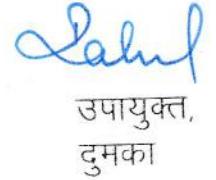 Rahul
उपायुक्त,
दुमका